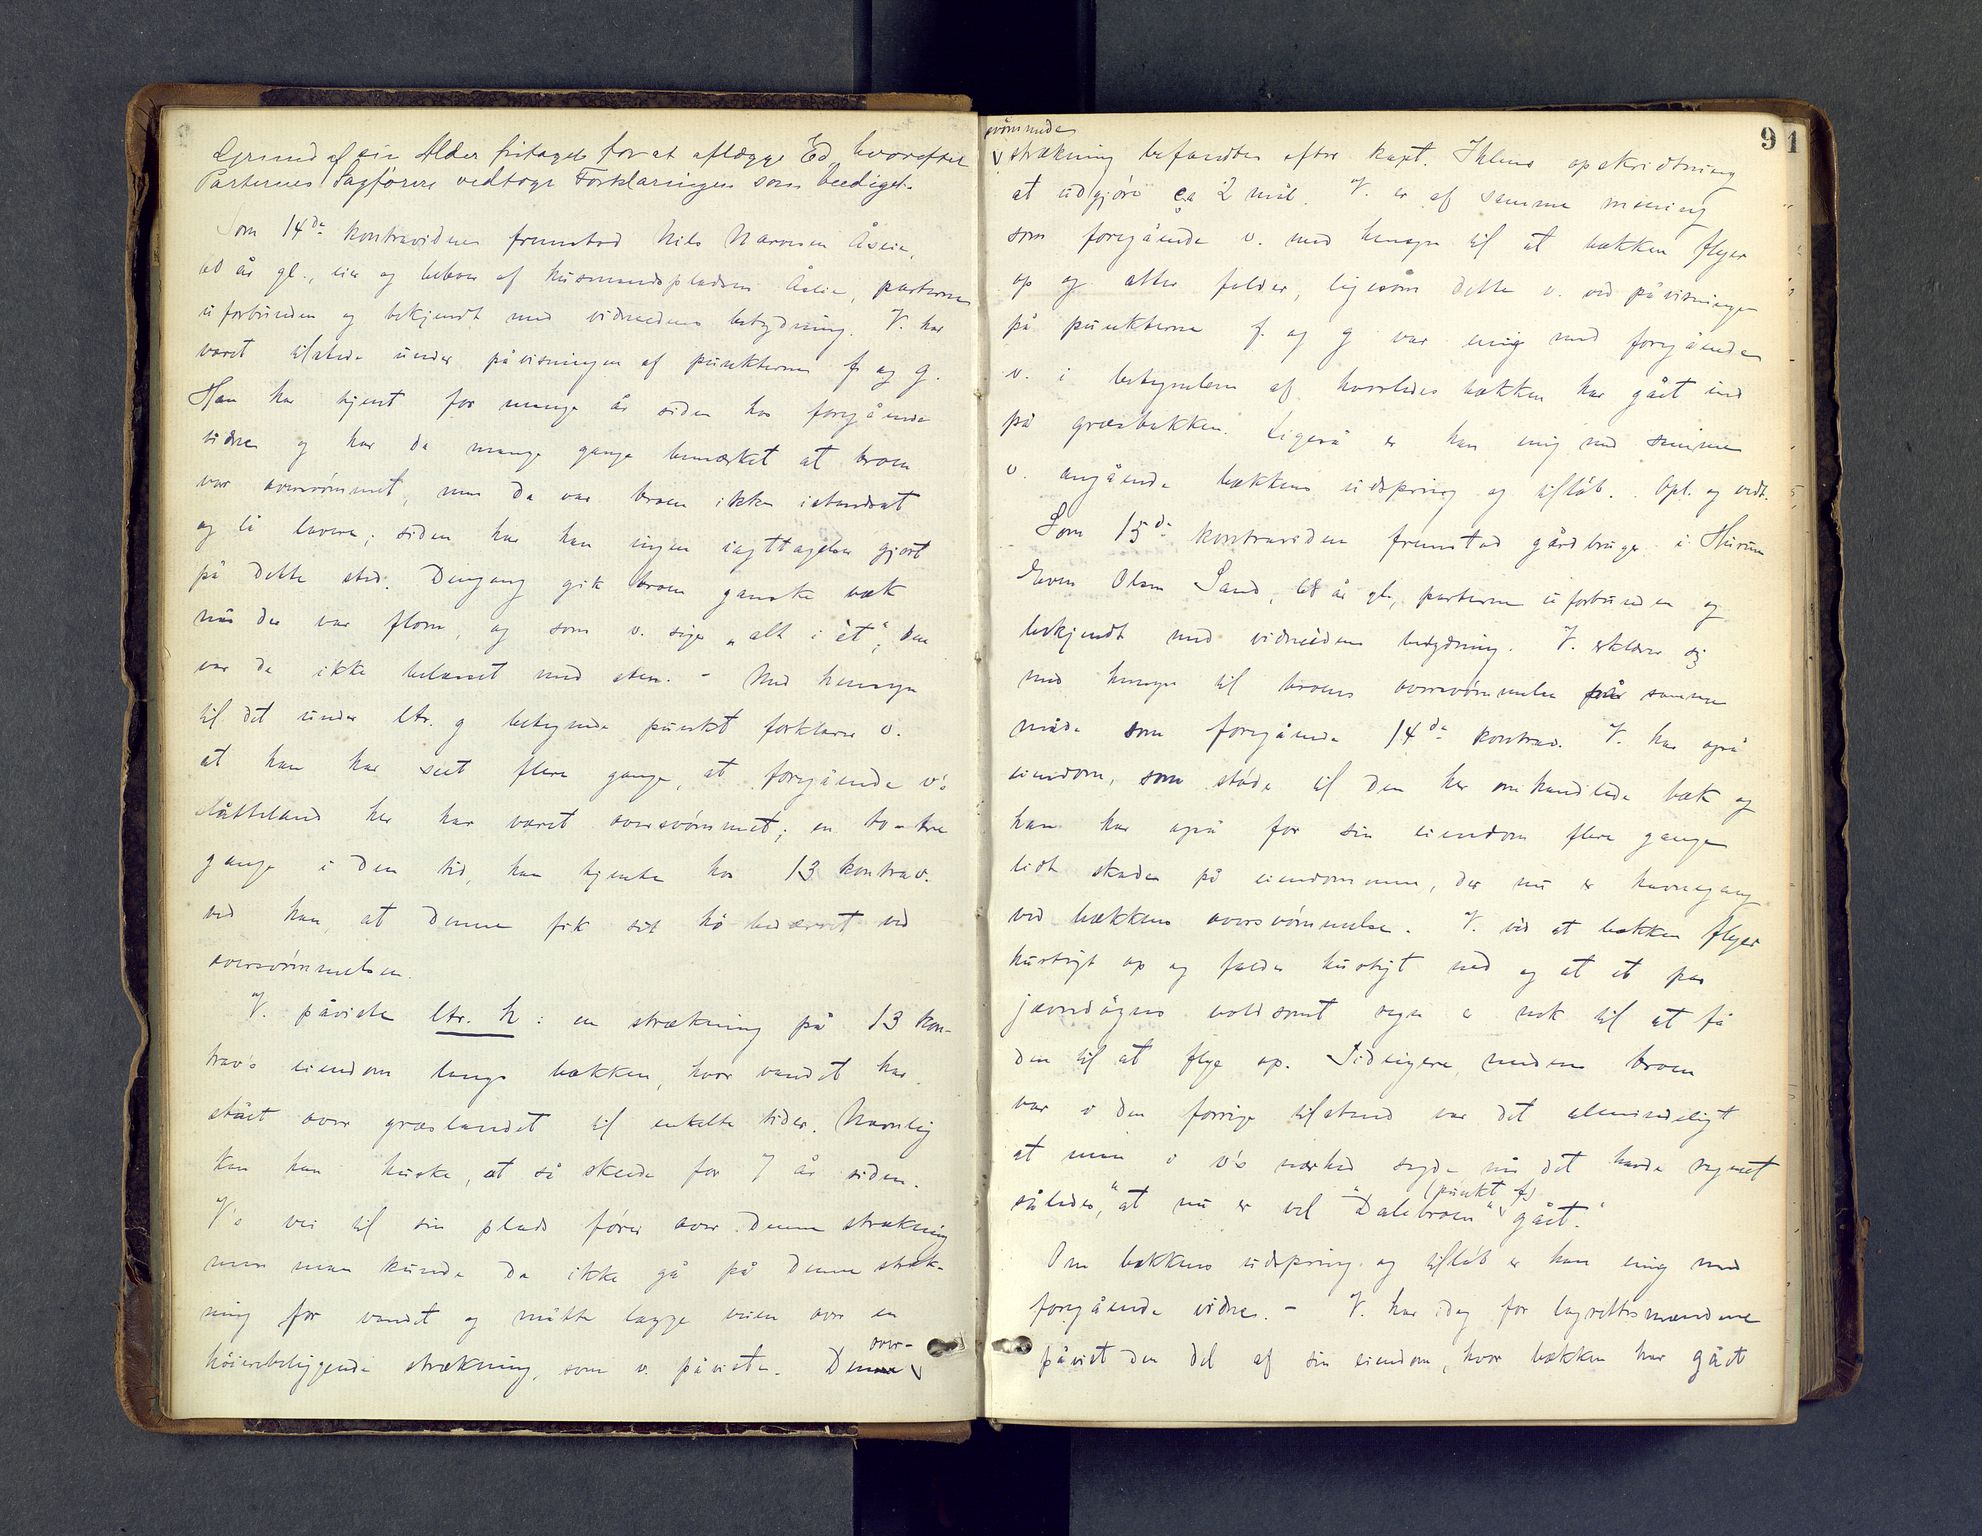 Grund af sin Alder fritages for at aflægge Ed, hvorefter
Parternes Sagførere vedtoge Forklaringen som beediget.
Som 14de kontravidne fremstod Nils Narvesen Åseie,
år gl., eier og beboer af husmandspladsen Åseie, parterne
uforbunden og bekjendt med vidneedens betydning. V. har
været tilstede under påvisningen af punkterne f og g.
Han har tjent for mange år siden hos foregående
vidne og har da mange gange bemærket at broen
var oversvømmet, men da var broen ikke istandsat
og lå lavere; siden har han ingen iagttagelser gjort
på dette sted. Dengang gik broen ganske væk
når der var flom, og som v. siger "alt i ét"; den
var da ikke belæsset med sten. - Med hensyn
til det under ltr. g betegnede punkt forklarer v.
at han har seet flere gange, at foregående v's
slåtteland her har været oversvømmet; en to-tre
gange i den tid, han tjente hos 13 kontrav.
ved han, at denne fik sit hø bedærvet ved
oversvømmelsen.
V. påviste ltr. h: en strækning på 13 kon-
trav's eiendom langs bækken, hvor vandet har
stået over græslandet til enkelte tider. Navnlig
kan han huske, at så skede for 7 år siden.
V's vei til sin plads fører over denne strækning
men man kunde da ikke gå på denne stræk-
ning for vandet og måtte lægge veien over en
høiereliggende strækning, som v. påviste. Denne over-
svømmede
strækning befandtes efter kapt. Ihlens opskridtning
at udgjøre ca 2 mål. V. er af samme mening
som foregående v. med hensyn til at bækken flyer
op og atter falder, ligesom dette v. ved påvisningen
på punkterne f. og g var enig med foregående
v. i betegnelsen af hvorledes bækken har gået ind
på græsbakken. Ligeså er han enig med samme
v. angående bækkens udspring og tilløb. Opl. og vedt.
Som 15de kontravidne fremstod gårdbruger i Hurum
Even Olsen Sand, 68 år gl., parterne uforbunden og
bekjendt med vidneedens betydning. V. erklærer sig
med hensyn til broens oversvømmelse på samme
måde som foregående 14de kontrav. V. har også
eiendom, som støder til den her omhandlede bæk og
han har også for sin eiendom flere gange
lidt skade på eiendommen, der nu er havnegang
ved bækkens oversvømmelse. V. ved at bækken flyer
hurtigt op og falder hurtigt ned og at et par
jævndøgns voldsomt regn er nok til at få
den til at flye op. Tidligere, medens broen
var i den forrige tilstand var det almindeligt
at man i v's nærhed sagde når det havde regnet
således, "at nu er vel "Dalebroen" (punkt f) gået."
Om bækkens udspring og tilløb er han enig med
foregående vidne. - V. har idag for lagrettesmændene
påvist den del af sin eiendom, hvor bækken har gået
91